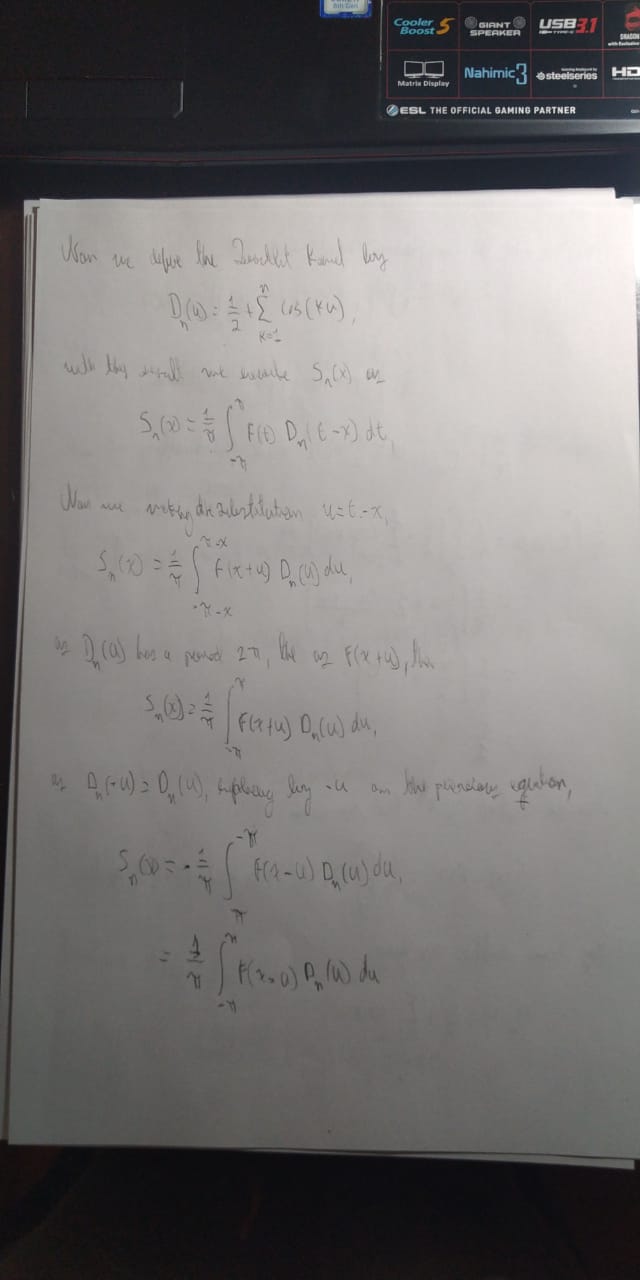 Cooler Boost 5
GIANT SPEAKER
USB 3.1
DRAGON
Matrix Display
Nahimic 3
steelseries
HD
ESL THE OFFICIAL GAMING PARTNER
Now we define the Kernel by
D_n(u) = 1/2 + Σ_{k=1}^{n} cos(ku),
with this we S_n(x) as
S_n(x) = 1/π ∫_{-π}^{π} F(t) D_n(t-x) dt,
Now we making the substitution u=t-x,
S_n(x) = 1/π ∫_{-π-x}^{π-x} F(x+u) D_n(u) du,
as D_n(u) has a period 2π, as F(x+u),
S_n(x) = 1/π ∫_{-π}^{π} F(x+u) D_n(u) du,
as D_n(-u) = D_n(u), by -u the previous equation,
S_n(x) = -1/π ∫_{π}^{-π} F(x-u) D_n(u) du,
= 1/π ∫_{-π}^{π} F(x-u) D_n(u) du